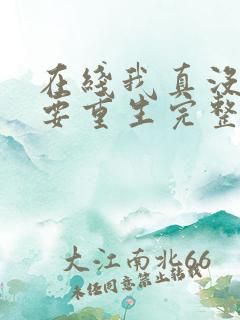 在綫我真没
要重生完整
大江南北66
未经同意禁止转载